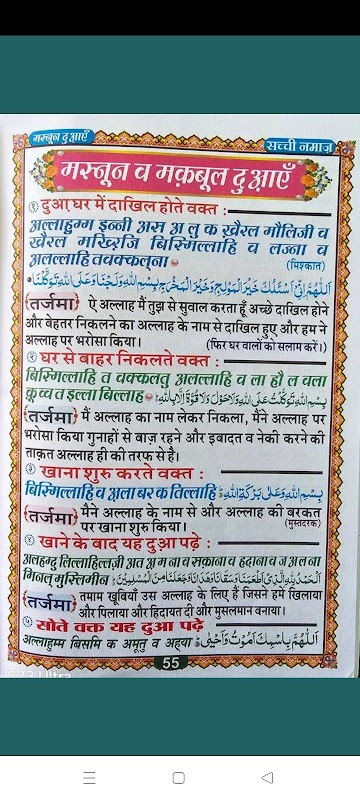 मस्नून दुआएँ
सच्ची नमाज़
मस्नून व मक़बूल दुआएँ
१ दुआ घर में दाखिल होते वक्त :
अल्लाहुम्म इन्नी अस अ लु क ख़ैरल मौलिजी व
ख़ैरल मख्रिजि बिस्मिल्लाहि व लज्ना व
अलल्लाहि तवक्कल्ना
(मिश्कात)
اَللّٰهُمَّ اِنِّیْ اَسْئَلُكَ خَیْرَ الْمَوْلِجِ وَخَیْرَ الْمَخْرَجِ بِسْمِ اللّٰهِ وَلَجْنَا وَعَلَی اللّٰهِ تَوَكَّلْنَا
(तर्जमा) ऐ अल्लाह मैं तुझ से सुवाल करता हूँ अच्छे दाखिल होने
और बेहतर निकलने का अल्लाह के नाम से दाखिल हुए और हम ने
अल्लाह पर भरोसा किया। (फिर घर वालों को सलाम करें।)
२ घर से बाहर निकलते वक्त :
बिस्मिल्लाहि त वक्कलतु अलल्लाहि व ला हौ ल वला
क़ुव्व त इल्ला बिल्लाह بِسْمِ اللّٰهِ تَوَكَّلْتُ عَلَی اللّٰهِ وَلَاحَوْلَ وَلَا قُوَّةَ اِلَّا بِاللّٰهِ
(तर्जमा) मैं अल्लाह का नाम लेकर निकला, मैंने अल्लाह पर
भरोसा किया गुनाहों से बाज़ रहने और इबादत व नेकी करने की
ताक़त अल्लाह ही की तरफ से है।
३ खाना शुरु करते वक्त :
बिस्मिल्लाहि व अला बर क तिल्लाहि بِسْمِ اللّٰهِ وَعَلٰی بَرَكَةِ اللّٰهِ
(तर्जमा) मैंने अल्लाह के नाम से और अल्लाह की बरकत
पर खाना शुरु किया। (मुस्तदरक)
४ खाने के बाद यह दुआ पढ़े :
अलहम्दु लिल्लाहिल्लज़ी अत अ म ना व सक़ाना व हदाना व ज अ ल ना
मिनल मुस्लिमीन اَلْحَمْدُ لِلّٰهِ الَّذِیْ اَطْعَمَنَا وَسَقَانَا وَهَدَانَا وَجَعَلَنَا مِنَ الْمُسْلِمِیْنَ
(तर्जमा) तमाम खूबियाँ उस अल्लाह के लिए हैं जिसने हमें खिलाया
और पिलाया और हिदायत दी और मुसलमान बनाया।
५ सोते वक्त यह दुआ पढ़े
अल्लाहुम्म बिसमि क अमूतु व अह्या اَللّٰهُمَّ بِاسْمِكَ اَمُوْتُ وَاَحْیٰی
55
S23 Ultra